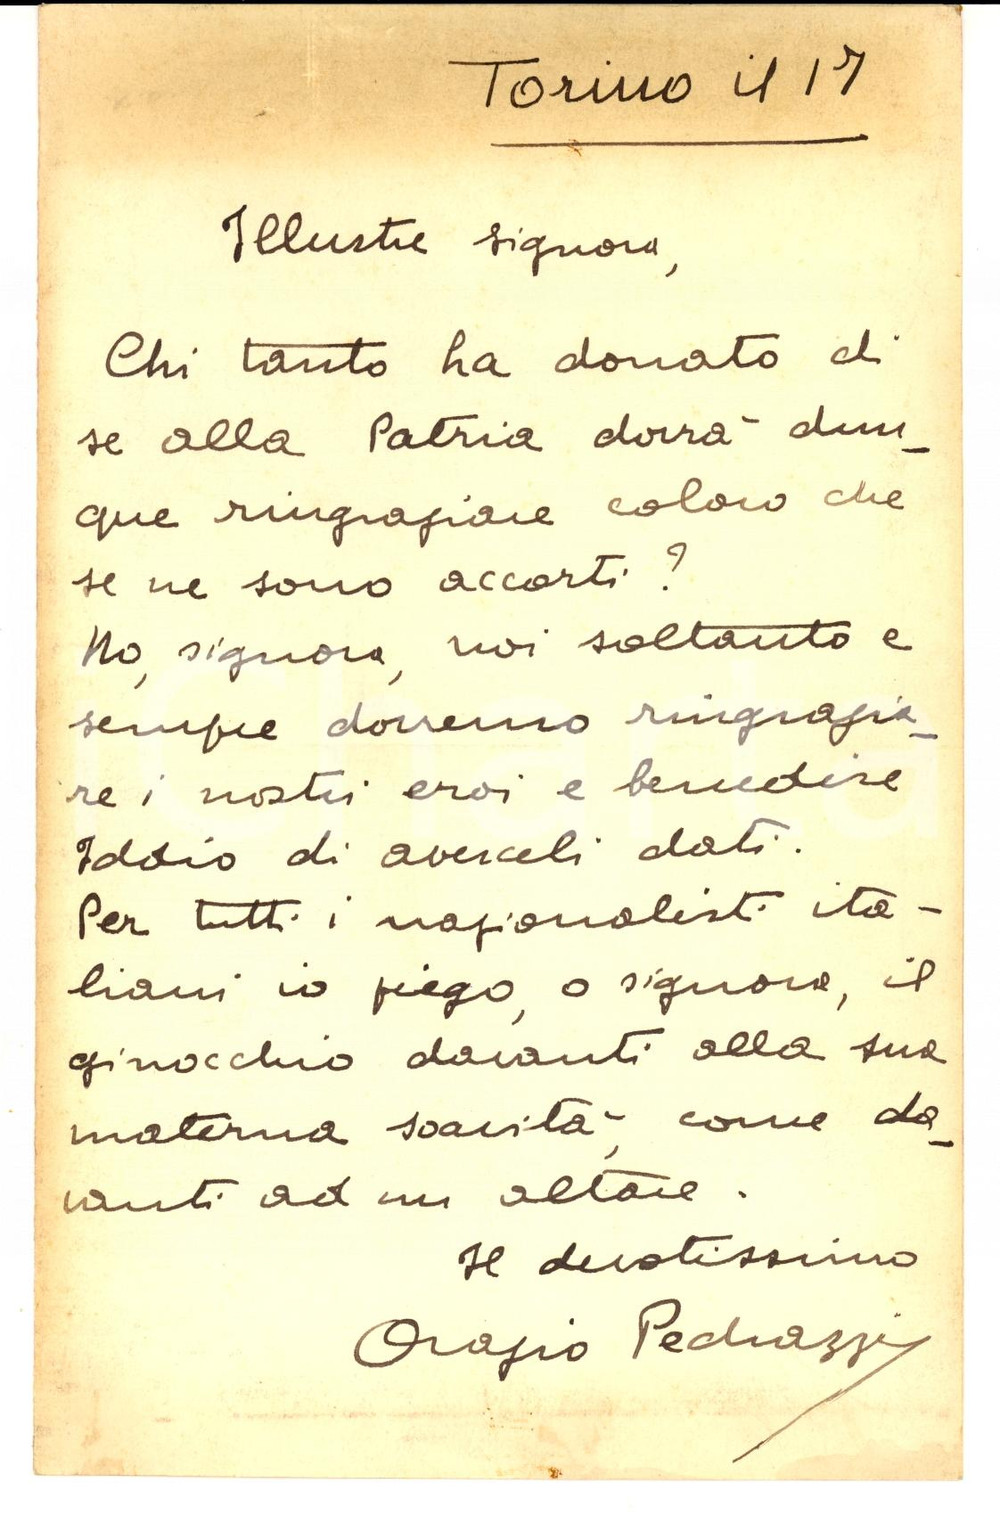 Torino il 17
Illustre signora,
Chi tanto ha donato di
se alla Patria dovrà dun-
que ringraziare coloro che
se ne sono accorti?
No, signora, noi soltanto e
sempre dovremo ringrazia-
re i nostri eroi e benedire
Iddio di averceli dati.
Per tutti i nazionalisti ita-
liani io piego, o signora, il
ginocchio davanti alla sua
materna soavità, come da-
vanti ad un altare.
Il devotissimo
Orazio Pedrazzi